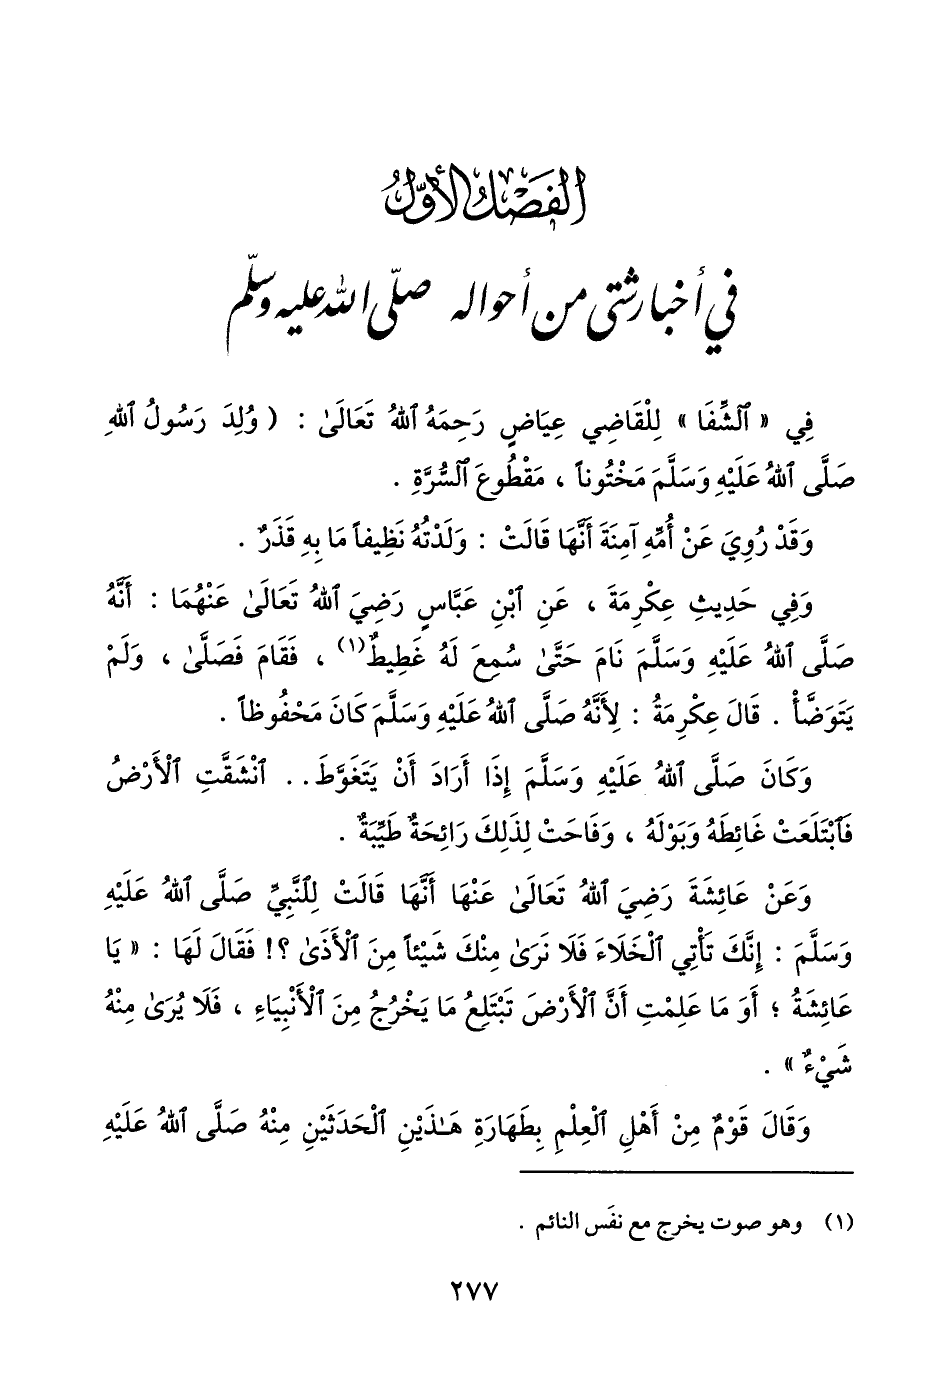 الفصل الأول
في أخبار شتى من أحواله صلى الله عليه وسلم
فِي « ٱلشِّفَا » لِلْقَاضِي عِيَاضٍ رَحِمَهُ ٱللهُ تَعَالَىٰ : ( وُلِدَ رَسُولُ ٱللهِ
صَلَّى ٱللهُ عَلَيْهِ وَسَلَّمَ مَخْتُوناً ، مَقْطُوعَ ٱلسُّرَّةِ .
وَقَدْ رُوِيَ عَنْ أُمِّهِ آمِنَةَ أَنَّهَا قَالَتْ : وَلَدْتُهُ نَظِيفاً مَا بِهِ قَذَرٌ .
وَفِي حَدِيثِ عِكْرِمَةَ ، عَنِ ٱبْنِ عَبَّاسٍ رَضِيَ ٱللهُ تَعَالَىٰ عَنْهُمَا : أَنَّهُ
صَلَّى ٱللهُ عَلَيْهِ وَسَلَّمَ نَامَ حَتَّىٰ سُمِعَ لَهُ غَطِيطٌ(١) ، فَقَامَ فَصَلَّىٰ ، وَلَمْ
يَتَوَضَّأْ . قَالَ عِكْرِمَةُ : لِأَنَّهُ صَلَّى ٱللهُ عَلَيْهِ وَسَلَّمَ كَانَ مَحْفُوظاً .
وَكَانَ صَلَّى ٱللهُ عَلَيْهِ وَسَلَّمَ إِذَا أَرَادَ أَنْ يَتَغَوَّطَ.. ٱنْشَقَّتِ ٱلْأَرْضُ
فَٱبْتَلَعَتْ غَائِطَهُ وَبَوْلَهُ ، وَفَاحَتْ لِذَلِكَ رَائِحَةٌ طَيِّبَةٌ .
وَعَنْ عَائِشَةَ رَضِيَ ٱللهُ تَعَالَىٰ عَنْهَا أَنَّهَا قَالَتْ لِلنَّبِيِّ صَلَّى ٱللهُ عَلَيْهِ
وَسَلَّمَ : إِنَّكَ تَأْتِي ٱلْخَلَاءَ فَلَا نَرَىٰ مِنْكَ شَيْئاً مِنَ ٱلْأَذَىٰ ؟! فَقَالَ لَهَا : « يَا
عَائِشَةُ ؛ أَوَ مَا عَلِمْتِ أَنَّ ٱلْأَرْضَ تَبْتَلِعُ مَا يَخْرُجُ مِنَ ٱلْأَنْبِيَاءِ ، فَلَا يُرَىٰ مِنْهُ
شَيْءٌ » .
وَقَالَ قَوْمٌ مِنْ أَهْلِ ٱلْعِلْمِ بِطَهَارَةِ هَـٰذَيْنِ ٱلْحَدَثَيْنِ مِنْهُ صَلَّى ٱللهُ عَلَيْهِ
(١) وهو صوت يخرج مع نفَس النائم .
٢٧٧